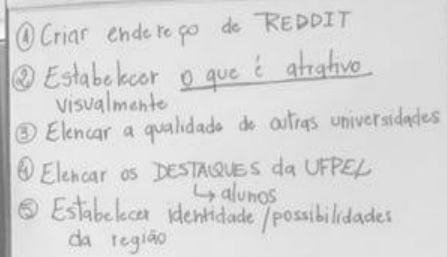 ① Criar endereço de REDDIT
② Estabelecer o que é atrativo
visualmente
③ Elencar a qualidade de outras universidades
④ Elencar os DESTAQUES da UFPEL
↳ alunos
⑤ Estabelecer identidade/possibilidades
da região